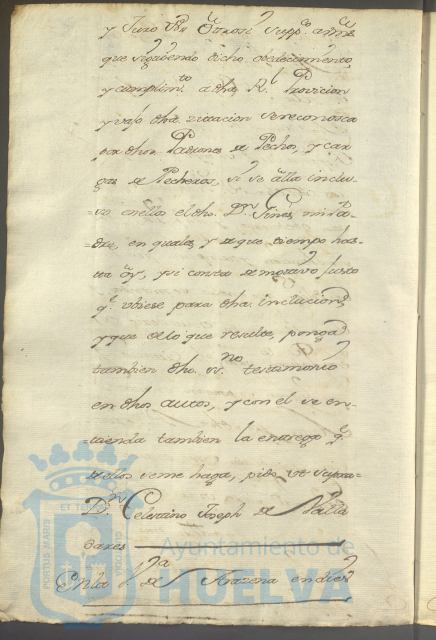 y Juro V.ª Otrosi Supp.co a Vms.
que siguiendo dicho obedecimiento,
y cumplim.to a dha R.l Provicion
y vajo dha zitacion se reconosca
por dhos Padrones de Pechos, y car
gas de Pecheros, si se alla inclu-
so en ellos el dho D.n Gines mi Pa-
dre, en quales, y de que tiempo has-
ta oy, y si consta de motivo justo
q.e ubiese para dha inclucion,
y que de lo que resulte, ponga
tambien dho ss.no testimonio
en dhos autos, y con el se en-
tienda tambien la entrega q.e
de ellos se me haga, pido ut supra=
D.n Celestino Joseph de Valla
dares
En la V.ª de Arazena en dies
PORTUS MARIS
ET TERRAE CUSTODIA
Ayuntamiento de
HUELVA